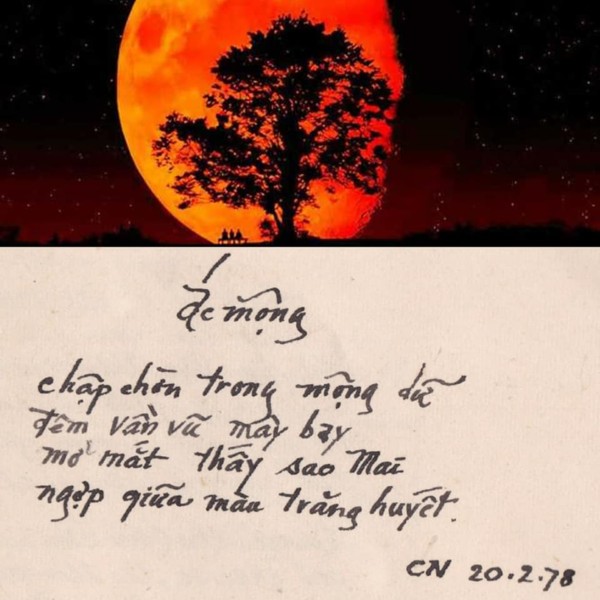 Ác mộng
chập chờn trong mộng dữ
đêm vần vũ mây bay
mở mắt thấy sao Mai
ngợp giữa màu trăng huyết.
CN 20.2.78